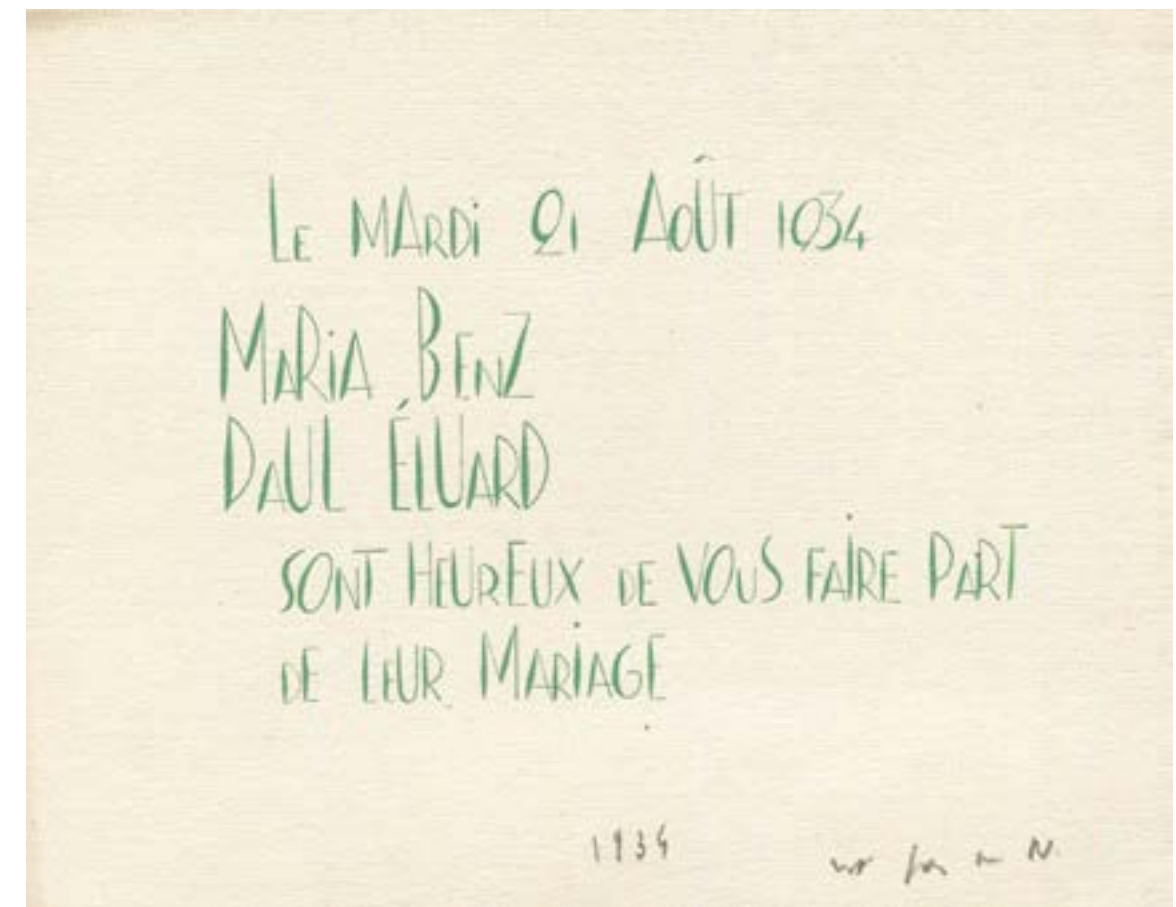 LE MARDI 21 AOÛT 1934
MARIA BENZ
PAUL ÉLUARD
SONT HEUREUX DE VOUS FAIRE PART
DE LEUR MARIAGE
1934